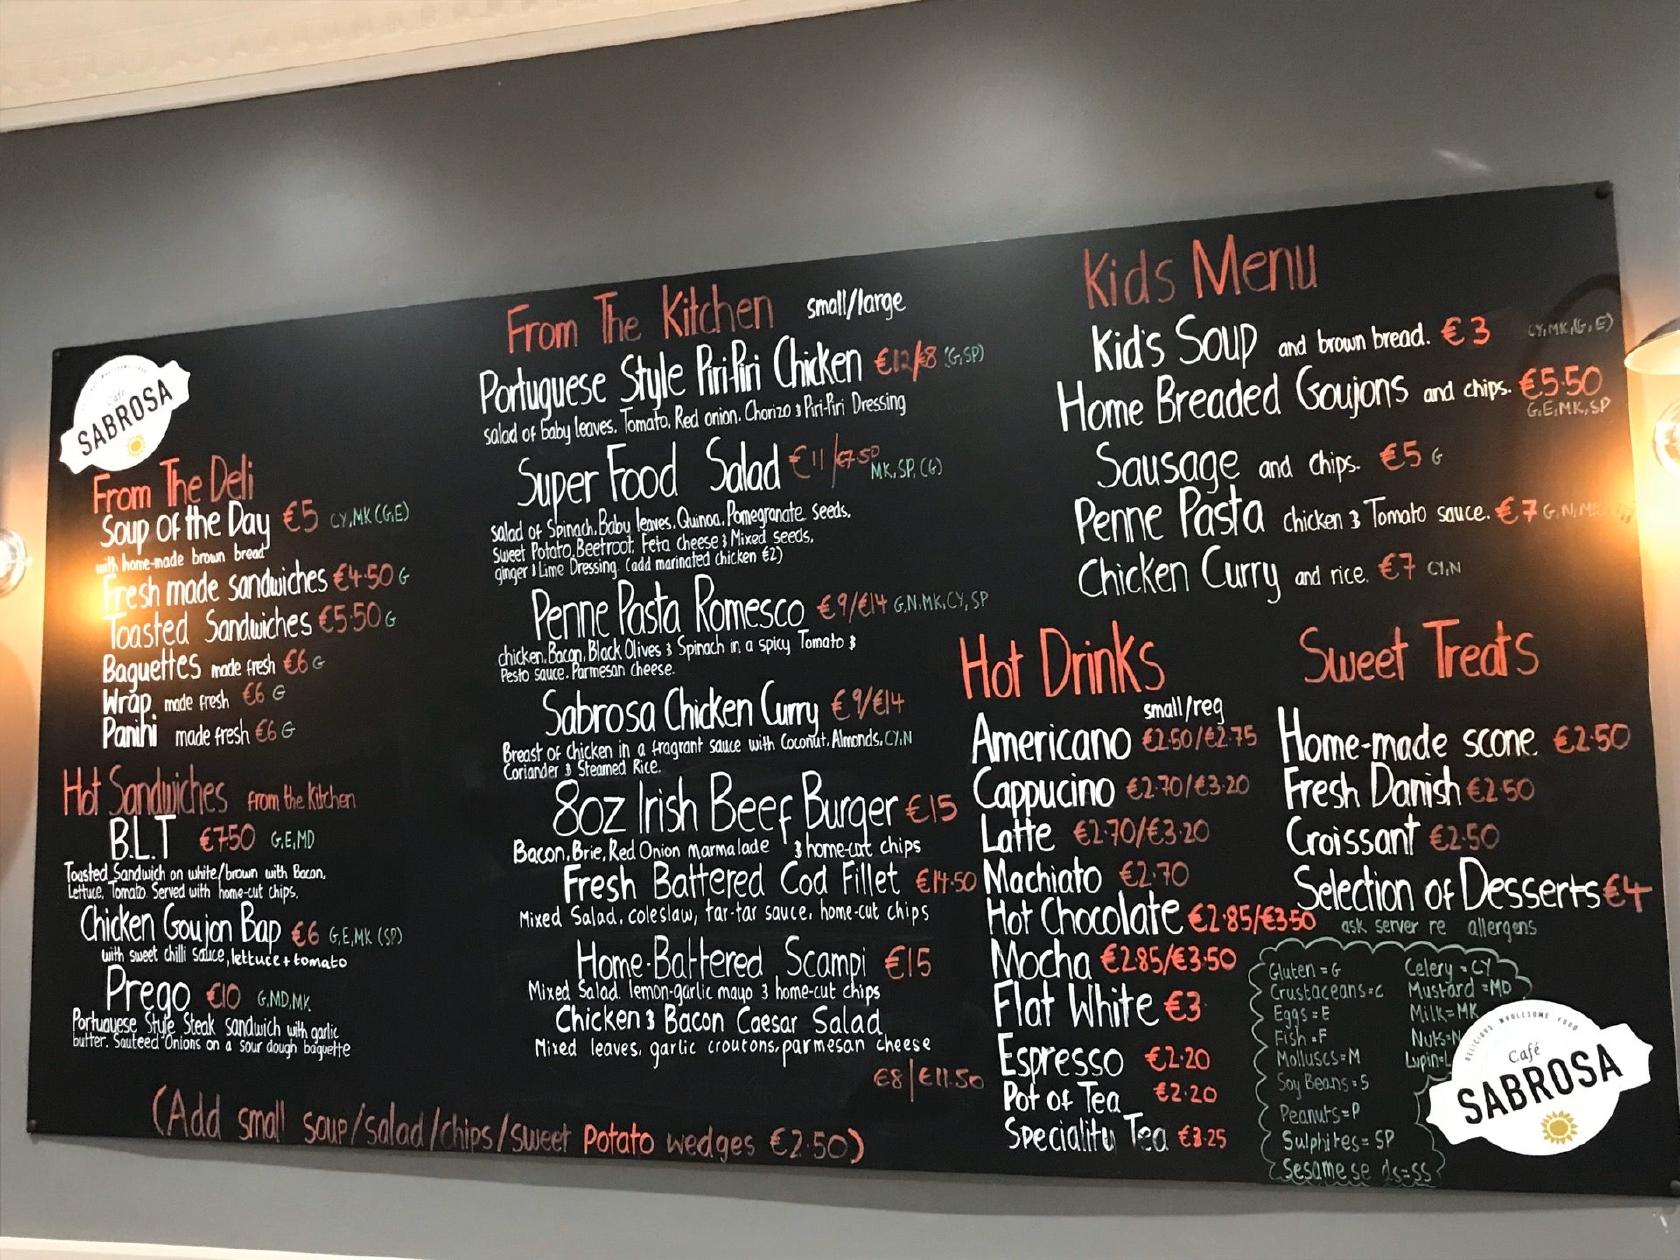 Café
SABROSA
From The Deli
Soup of the Day €5 CY,MK(G,E)
with home-made brown bread
Fresh made sandwiches €4.50 G
Toasted Sandwiches €5.50 G
Baguettes made fresh €6 G
Wrap made fresh €6 G
Panini made fresh €6 G
Hot Sandwiches from the Kitchen
B.L.T €7.50 G,E,MD
Toasted Sandwich on white/brown with Bacon,
Lettuce, Tomato. Served with home-cut chips.
Chicken Goujon Bap €6 G,E,MK (SP)
with sweet chilli sauce, lettuce + tomato
Prego €10 G,MD,MK
Portuguese Style Steak sandwich with garlic
butter. Sauteed Onions on a sour dough baguette
From The Kitchen small/large
Portuguese Style Piri-Piri Chicken €12/€8 (G,SP)
salad of baby leaves, Tomato, Red onion, Chorizo & Piri-Piri Dressing
Super Food Salad €11/€7.50
MK, SP, (G)
salad of Spinach, Baby leaves, Quinoa, Pomegranate Seeds,
Sweet Potato, Beetroot, Feta cheese & Mixed seeds,
ginger & Lime Dressing. (add marinated chicken €2)
Penne Pasta Romesco €9/€14 G,N,MK,CY,SP
chicken, Bacon, Black Olives & Spinach in a spicy Tomato &
Pesto sauce. Parmesan cheese.
Sabrosa Chicken Curry €9/€14
Breast of chicken in a fragrant sauce with Coconut, Almonds, CY,N
Coriander & Steamed Rice.
8oz Irish Beef Burger €15
Bacon, Brie, Red Onion marmalade & home-cut chips
Fresh Battered Cod Fillet €14.50
Mixed Salad, coleslaw, tar-tar sauce, home-cut chips
Home-Battered Scampi €15
Mixed Salad. lemon-garlic mayo & home-cut chips
Chicken & Bacon Caesar Salad
Mixed leaves, garlic croutons, parmesan cheese
€8/€11.50
(Add small soup/salad/chips/sweet potato wedges €2.50)
Kids Menu
Kid's Soup and brown bread. €3 CY,MK,(G,E)
Home Breaded Goujons and chips. €5.50
G,E,MK,SP
Sausage and chips. €5 G
Penne Pasta chicken & Tomato sauce. €7 G,N,MK
Chicken Curry and rice. €7 CY,N
Hot Drinks
small/reg
Americano €2.50/€2.75
Cappucino €2.70/€3.20
Latte €2.70/€3.20
Machiato €2.70
Hot Chocolate €2.85/€3.50
Mocha €2.85/€3.50
Flat White €3
Espresso €2.20
Pot of Tea €2.20
Speciality Tea
Sweet Treats
Home-made scone €2.50
Fresh Danish €2.50
Croissant €2.50
Selection of Desserts €4
ask server re allergens
Gluten = G
Crustaceans=C
Eggs = E
Fish = F
Molluscs=M
Soy Beans = S
Peanuts=P
Sulphites= SP
Sesame se ds=SS
Celery = CY
Mustard =MD
Milk=MK
Nuts=N
Lupin=L
DELICIOUS WHOLESOME FOOD
Café
SABROSA